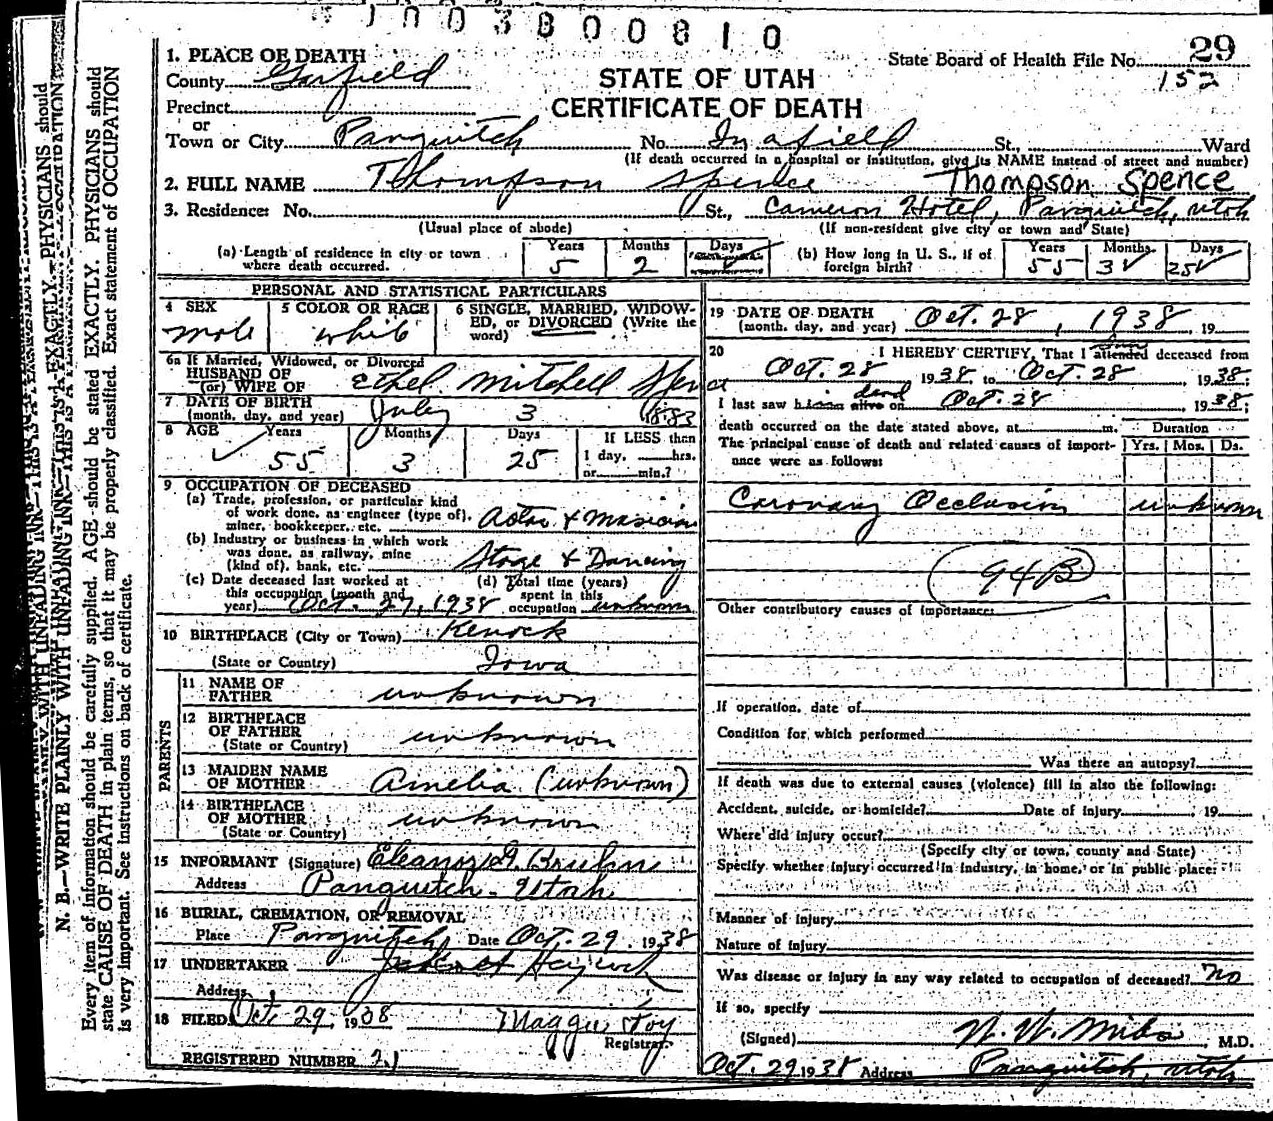 1003800810
1. PLACE OF DEATH
County Garfield
Precinct
or
Town or City Panguitch No. In a field St., Ward
(If death occurred in a hospital or institution, give its NAME instead of street and number)
State Board of Health File No. 29
152
STATE OF UTAH
CERTIFICATE OF DEATH
2. FULL NAME Thompson Spence Thompson Spence
3. Residence: No. St., Cameron Hotel, Panguitch, Utah
(Usual place of abode) (If non-resident give city or town and State)
(a) Length of residence in city or town where death occurred. Years 5 Months 2 Days
(b) How long in U. S., if of foreign birth? Years 55 Months 3 Days 25
PERSONAL AND STATISTICAL PARTICULARS
4 SEX male
5 COLOR OR RACE white
6 SINGLE, MARRIED, WIDOWED, or DIVORCED (Write the word)
6a If Married, Widowed, or Divorced
HUSBAND OF
(or) WIFE OF Ethel Mitchell Spence
7 DATE OF BIRTH
(month, day, and year) July 3 1883
8 AGE Years 55 Months 3 Days 25 If LESS then
1 day, hrs.
or min.?
9 OCCUPATION OF DECEASED
(a) Trade, profession, or particular kind
of work done, as engineer (type of),
miner, bookkeeper, etc. Actor & Musician
(b) Industry or business in which work
was done, as railway, mine
(kind of), bank, etc. Stage & Dancing
(c) Date deceased last worked at
this occupation (month and
year) Oct. 27, 1938
(d) Total time (years)
spent in this
occupation unknown
10 BIRTHPLACE (City or Town)
(State or Country) Iowa
PARENTS
11 NAME OF
FATHER unknown
12 BIRTHPLACE
OF FATHER
(State or Country) unknown
13 MAIDEN NAME
OF MOTHER Amelia (unknown)
14 BIRTHPLACE
OF MOTHER
(State or Country) unknown
15 INFORMANT (Signature) Eleanor G. Bruhn
Address Panguitch - Utah
16 BURIAL, CREMATION, OR REMOVAL
Place Panguitch Date Oct. 29, 1938
17 UNDERTAKER
Address
18 FILED Oct. 29, 1938 Maggie Foy
Registrar
REGISTERED NUMBER 21
19 DATE OF DEATH
(month, day, and year) Oct. 28, 1938, 19
20 I HEREBY CERTIFY, That I attended deceased from
Oct. 28 1938, to Oct. 28, 1938;
I last saw h alive on dead Oct. 28 1938;
death occurred on the date stated above, at m. Duration
The principal cause of death and related causes of importance were as follows: Yrs. Mos. Ds.
Coronary Occlusion unknown
94B
Other contributory causes of importance:
If operation, date of
Condition for which performed
Was there an autopsy?
If death was due to external causes (violence) fill in also the following:
Accident, suicide, or homicide? Date of injury , 19
Where did injury occur?
(Specify city or town, county and State)
Specify whether injury occurred in industry, in home, or in public place:
Manner of injury
Nature of injury
Was disease or injury in any way related to occupation of deceased? no
If so, specify
(Signed) , M.D.
Oct. 29 1938 Address Panguitch, Utah
N. B.—WRITE PLAINLY WITH UNFADING INK—THIS IS A PERMANENT
Every item of information should be carefully supplied. AGE should be stated EXACTLY. PHYSICIANS should
state CAUSE OF DEATH in plain terms, so that it may be properly classified. Exact statement of OCCUPATION
is very important. See instructions on back of certificate.